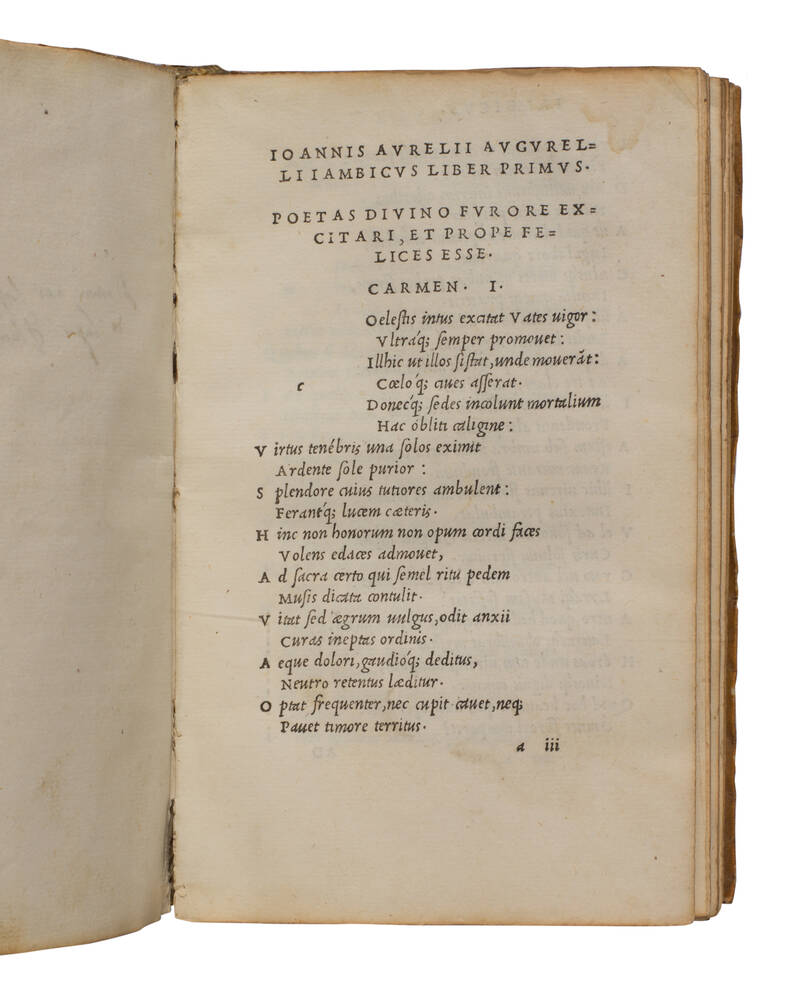 IOANNIS AVRELII AVGVREL=
LI IAMBICVS LIBER PRIMVS.
POETAS DIVINO FVRORE EX=
CITARI, ET PROPE FE=
LICES ESSE.
CARMEN. I.
Oelestis intus excitat Vates uigor:
Vltráq; semper promouet:
Illhic ut illos sistat, unde mouerãt:
c Cœlóq; ciues asserat.
Donecq́; sedes incolunt mortalium
Hac obliti caligine:
V irtus tenébris una solos eximit
Ardente sole purior:
S plendore cuius tutiores ambulent:
Ferantq́; lucem cæteris.
H inc non honorum non opum cordi faces
Volens edaces admouet,
A d sacra certo qui semel ritu pedem
Musis dicata contulit.
V itat sed ægrum uulgus, odit anxii
Curas ineptas ordinis.
A eque dolori, gaudióq; deditus,
Neutro retentus læditur.
O ptat frequenter, nec cupit cauet, neq;
Pauet timore territus.
a iii